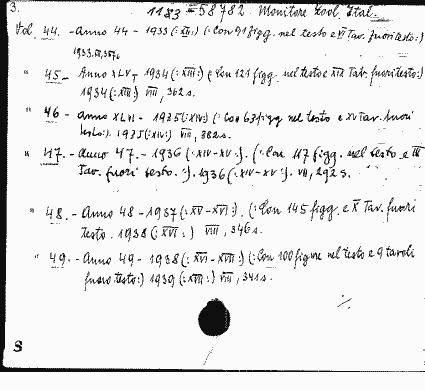 3.
1183 = 58782. Monitore Zool. Ital.
Vol. 44. - Anno 44 - 1933 (: XII:) (: Con 91 figg. nel testo e VI Tav. fuori testo:)
1933. VII, 357s.
" 45 - Anno XLV - 1934 (: XIII:) (: Con 121 figg. nel testo e XIX Tab. fuori testo:)
1934 (: XII:) VIII, 362 s.
" 46 - Anno XLVI - 1935 (: XIV:) (: Con 63 figg nel testo e XV Tav. fuori
testo:). 1935 (: XIV:) VII, 882 s.
" 47. - Anno 47. - 1936 (: XIV - XV:). (: Con 117 figg. nel testo e III
Tav. fuori testo. :). 1936 (: XIV - XV :). VII, 292 s.
" 48. - Anno 48 - 1937 (: XV - XVI:). (: Con 145 figg. e X Tav. fuori
testo. 1938 (: XVI :) VIII, 346 s.
" 49. - Anno 49 - 1938 (: XVI - XVII:) (: Con 100 figure nel testo e 9 tavole
fuori testo:) 1939 (: XVII:) VIII, 341 s.
./.
S